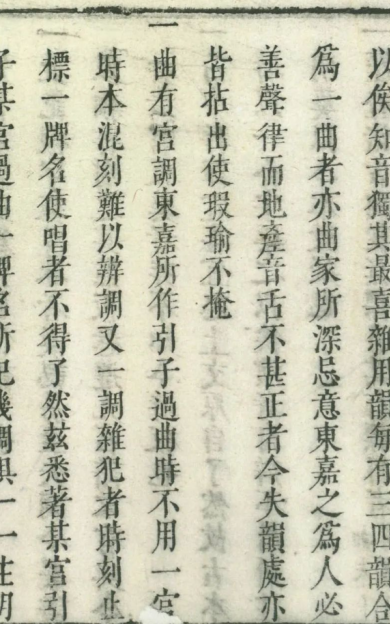 以俟知音獨其最喜雜用韻每有三四韻合
為一曲者亦曲家所深忌意東嘉之為人必
善聲律而地產音舌不甚正者今失韻處亦
皆拈出使瑕瑜不掩
一曲有宮調東嘉所作引子過曲時不用一宮
時本混刻難以辨調又一調雜犯者時刻止
標一牌名使唱者不得了然玆悉著某宮引
子某宮過曲一牌名所犯幾調俱一一註明